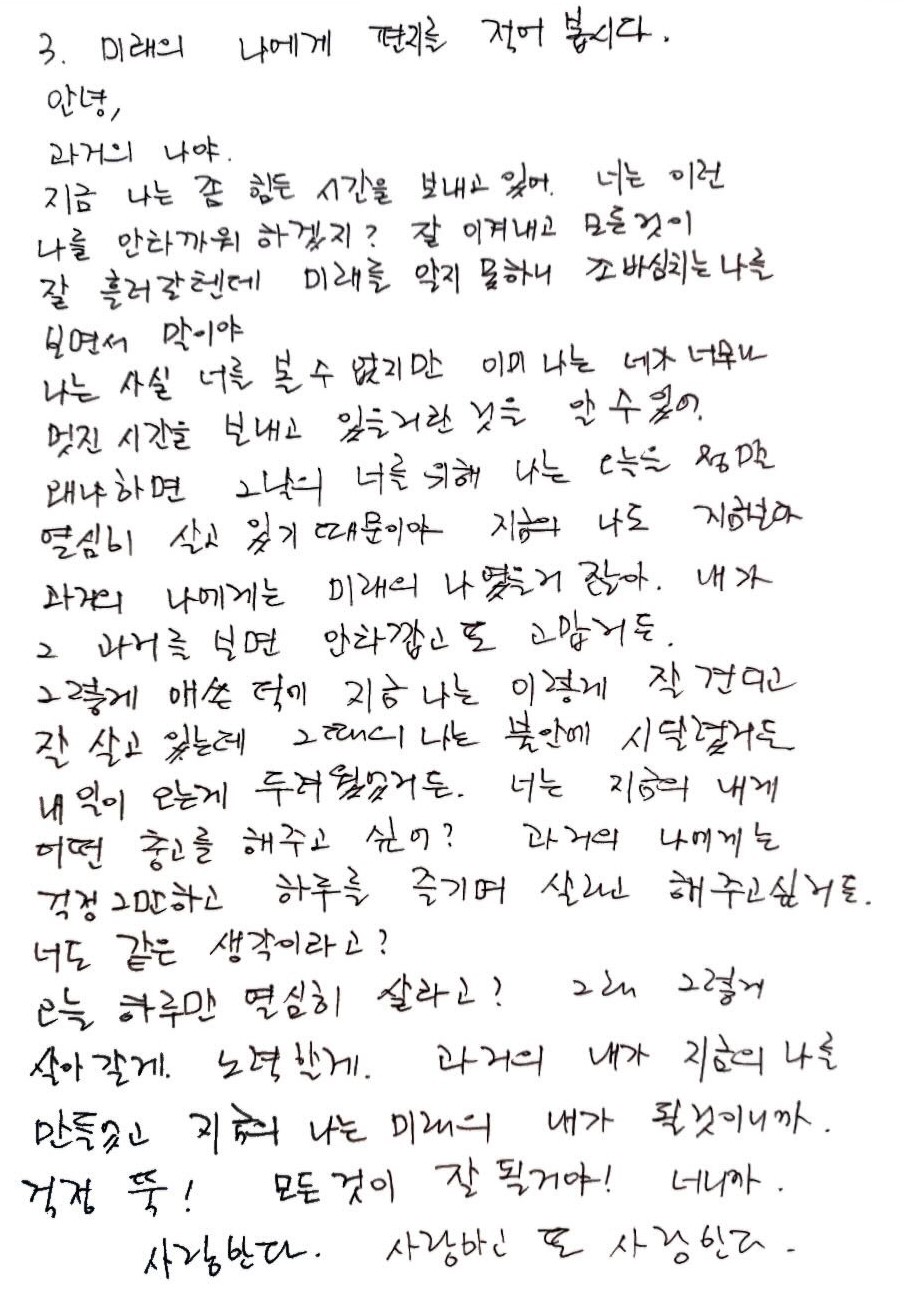 3. 미래의 나에게 편지를 적어 봅시다.
안녕,
과거의 나야.
지금 나는 좀 힘든 시간을 보내고 있어. 너는 이런
나를 안타까워 하겠지? 잘 이겨내고 모든것이
잘 흘러갈텐데 미래를 알지 못하니 조바심치는 나를
보면서 말이야
나는 사실 너를 볼 수 없지만 이미 나는 네가 너무나
멋진 시간을 보내고 있을거란 것을 알 수 있어.
왜냐하면 그날의 너를 위해 나는 오늘을 정말
열심히 살고 있기 때문이야 지금의 나도 지금보다
과거의 나에게는 미래의 나였을거 잖아. 내가
그 과거를 보면 안타깝고 또 고맙거든.
그렇게 애쓴 덕에 지금 나는 이렇게 잘 견디고
잘 살고 있는데 그때의 나는 불안에 시달렸거든
내일이 오는게 두려웠었거든. 너는 지금의 내게
어떤 충고를 해주고 싶어? 과거의 나에게는
걱정 그만하고 하루를 즐기며 살라고 해주고싶거든.
너도 같은 생각이라고?
오늘 하루만 열심히 살라고? 그래 그렇게
살아갈게. 노력할게. 과거의 내가 지금의 나를
만들었고 지금의 나는 미래의 내가 될것이니까.
걱정 뚝! 모든것이 잘 될거야! 너니까.
사랑한다. 사랑하고 또 사랑한다.